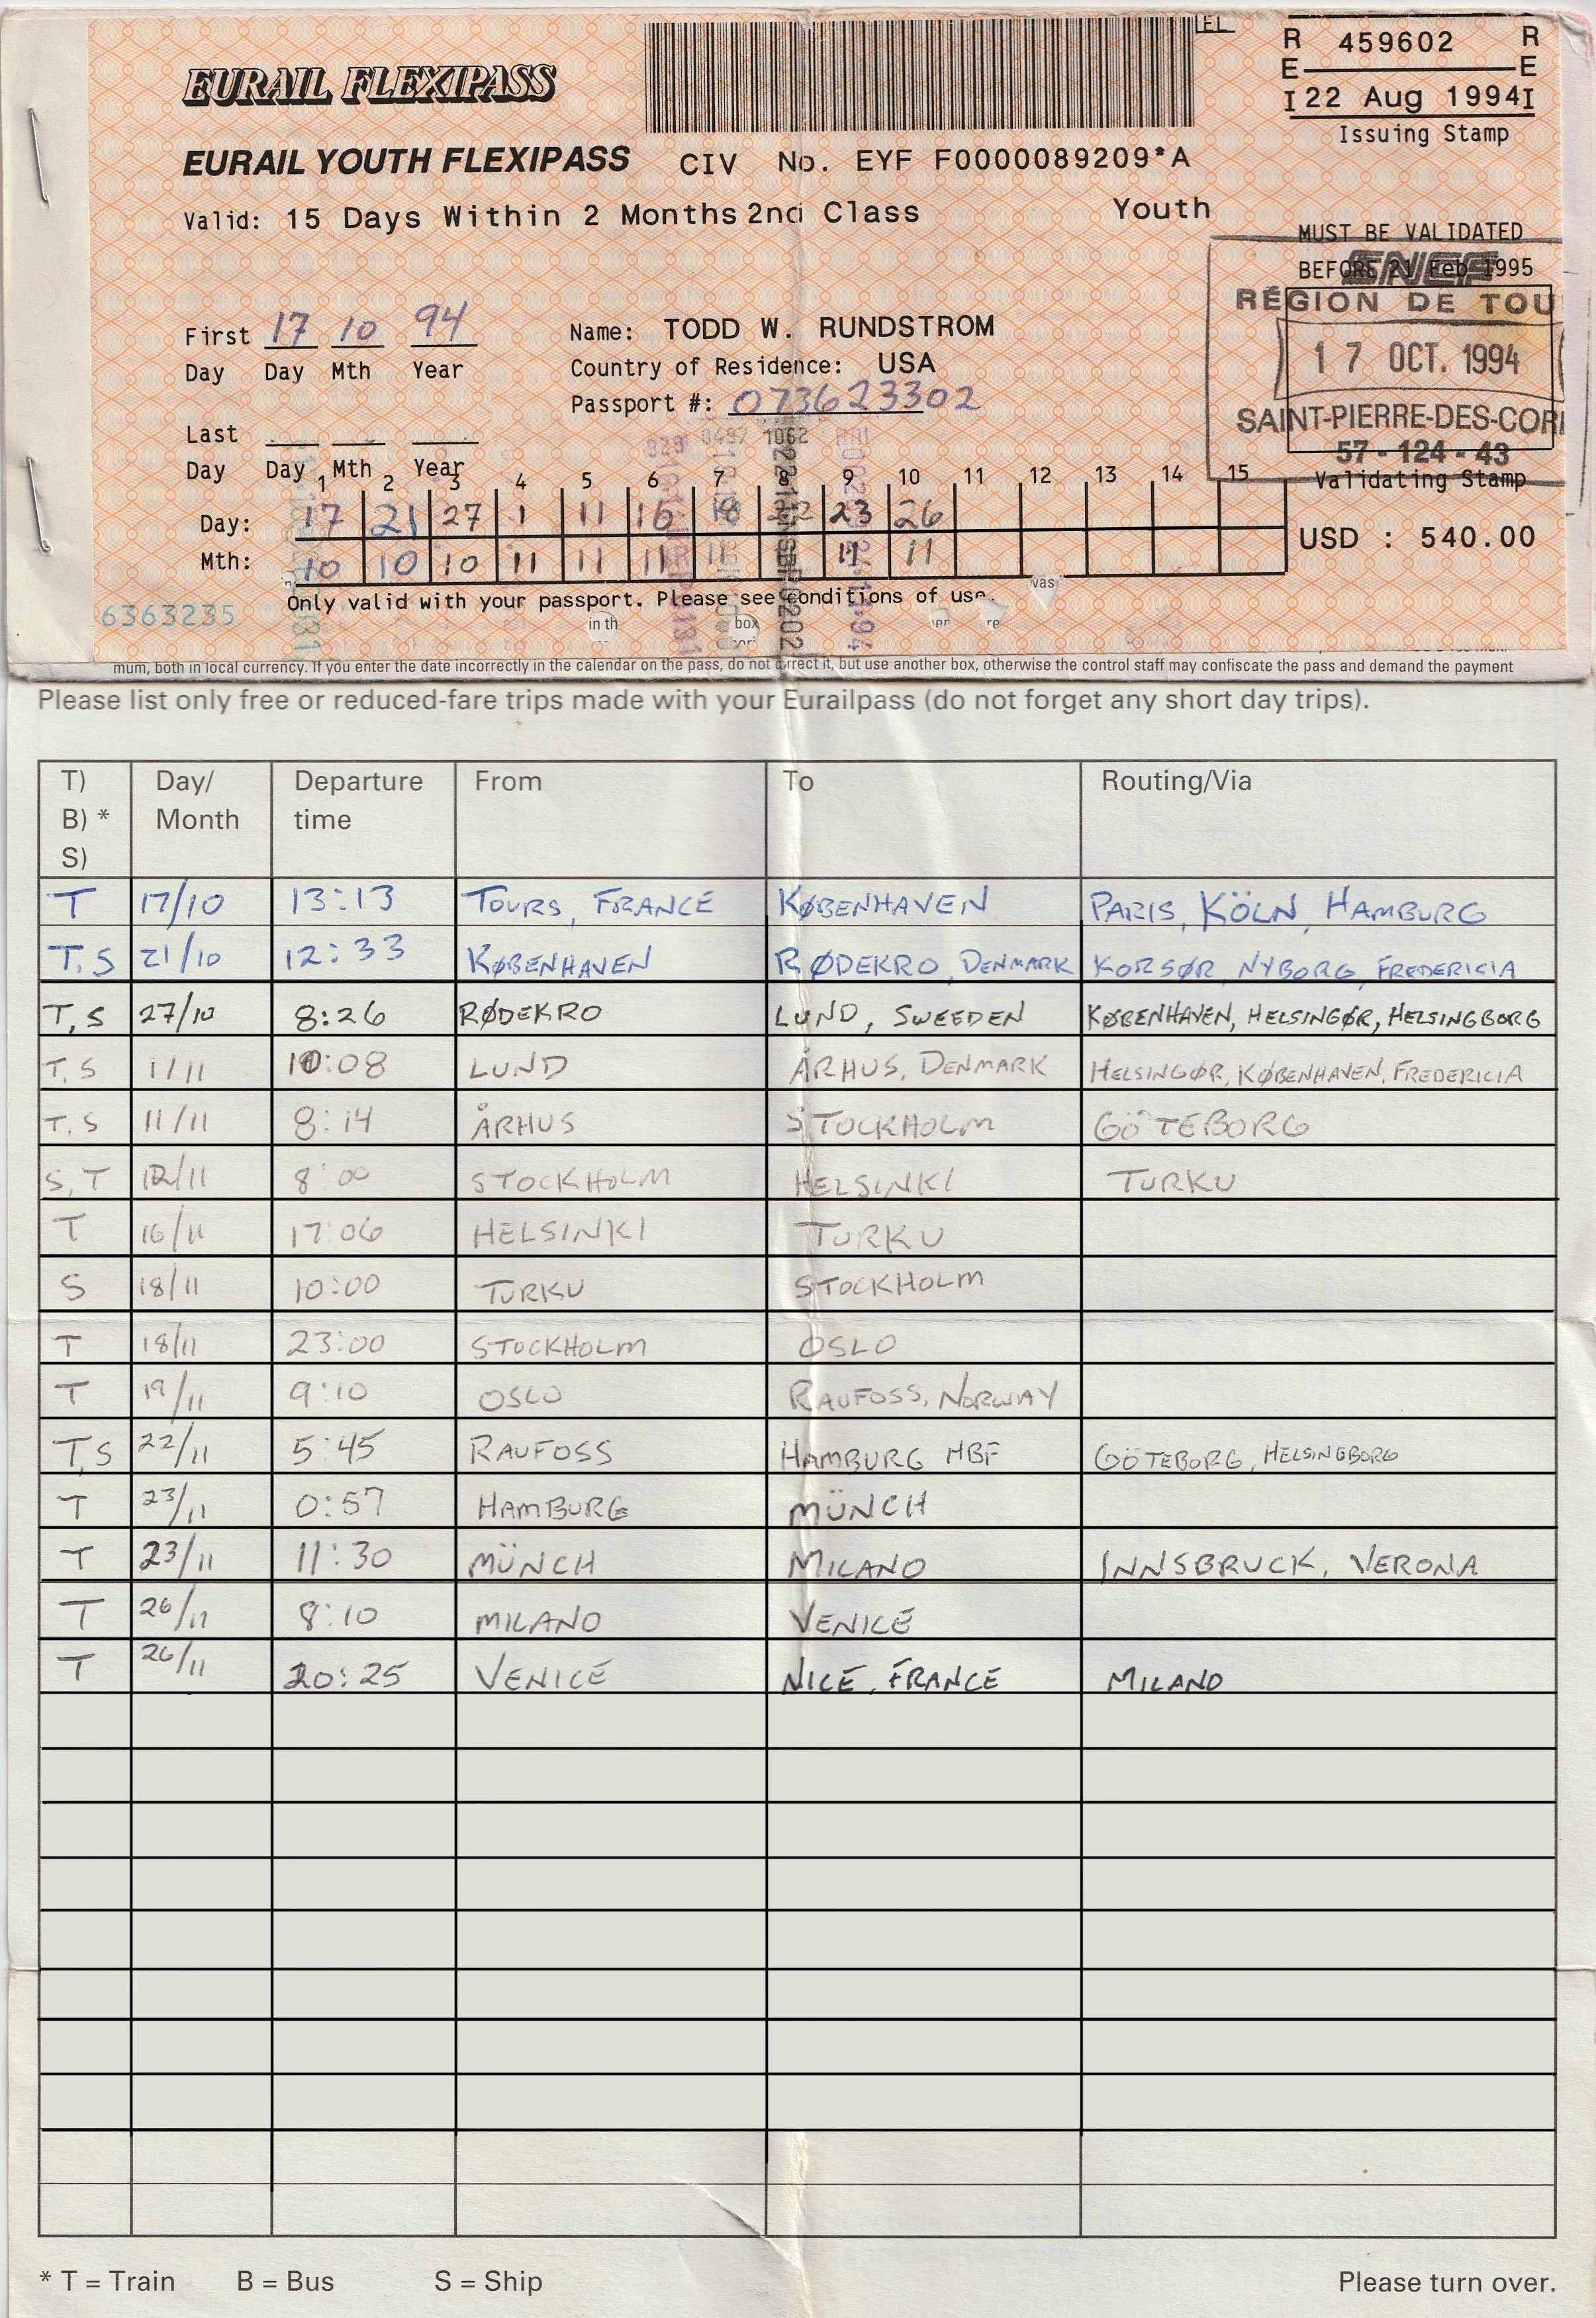 EURAIL FLEXIPASS
EL
R 459602 R
E E
I 22 Aug 1994 I
Issuing Stamp
EURAIL YOUTH FLEXIPASS CIV No. EYF F0000089209*A
Valid: 15 Days Within 2 Months 2nd Class Youth
MUST BE VALIDATED
BEFORE 21 Feb 1995
SNCF
RÉGION DE TOU
17 OCT. 1994
SAINT-PIERRE-DES-COR
57-124-43
Validating Stamp
First 17 10 94
Day Day Mth Year
Name: TODD W. RUNDSTROM
Country of Residence: USA
Passport #: 073623302
Last
Day Day Mth Year
1 2 3 4 5 6 7 8 9 10 11 12 13 14 15
Day: 17 21 27 1 11 16 18 22 23 26
Mth: 10 10 10 11 11 11 11 11 11
USD : 540.00
Only valid with your passport. Please see conditions of use.
6363235
mum, both in local currency. If you enter the date incorrectly in the calendar on the pass, do not correct it, but use another box, otherwise the control staff may confiscate the pass and demand the payment
Please list only free or reduced-fare trips made with your Eurailpass (do not forget any short day trips).
T) B) * S) Day/ Month Departure time From To Routing/Via
T 17/10 13:13 TOURS, FRANCE KØBENHAVEN PARIS, KÖLN, HAMBURG
T, S 21/10 12:33 KØBENHAVEN RØDEKRO, DENMARK KORSØR, NYBORG, FREDERICIA
T, S 27/10 8:26 RØDEKRO LUND, SWEEDEN KØBENHAVEN, HELSINGØR, HELSINGBORG
T, S 1/11 10:08 LUND ÅRHUS, DENMARK HELSINGØR, KØBENHAVEN, FREDERICIA
T, S 11/11 8:14 ÅRHUS STOCKHOLM GÖTEBORG
S, T 12/11 8:00 STOCKHOLM HELSINKI TURKU
T 16/11 17:06 HELSINKI TURKU
S 18/11 10:00 TURKU STOCKHOLM
T 18/11 23:00 STOCKHOLM OSLO
T 19/11 9:10 OSLO RAUFOSS, NORWAY
T, S 22/11 5:45 RAUFOSS HAMBURG HBF GÖTEBORG, HELSINGBORG
T 23/11 0:57 HAMBURG MÜNCH
T 23/11 11:30 MÜNCH MILANO INNSBRUCK, VERONA
T 26/11 8:10 MILANO VENICE
T 26/11 20:25 VENICE NICE, FRANCE MILANO
* T = Train B = Bus S = Ship Please turn over.